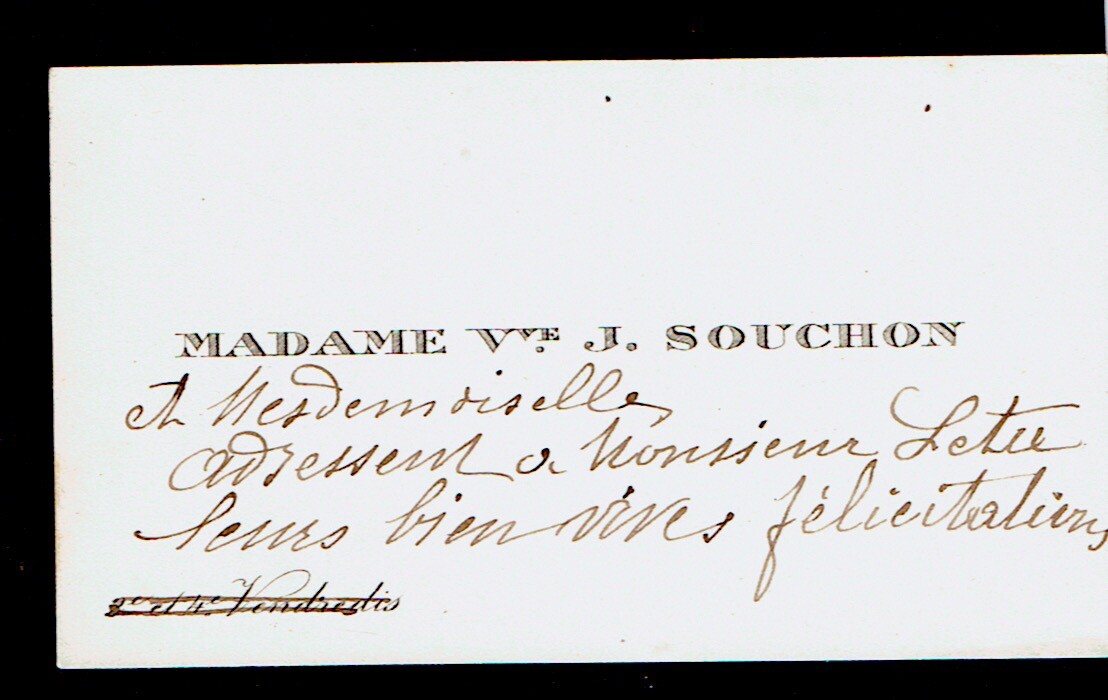 MADAME Vve J. SOUCHON
et Mesdemoiselles
adressent a Monsieur Letu
leurs bien vives félicitations
2e et 4e Vendredis